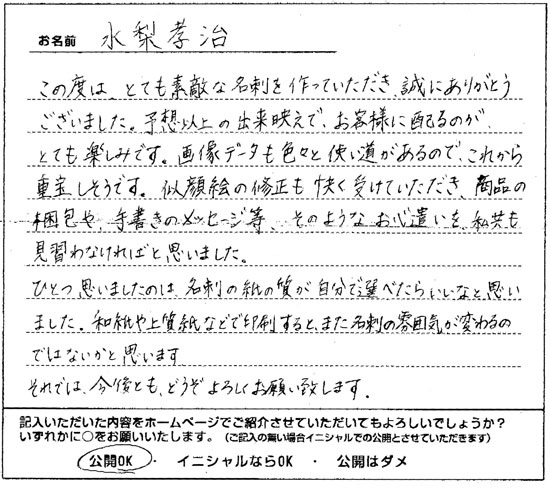 お名前 水梨孝治
この度は、とても素敵な名刺を作っていただき、誠にありがとう
ございました。予想以上の出来映えで、お客様に配るのが、
とても楽しみです。画像データも色々と使い道があるので、これから
重宝しそうです。似顔絵の修正も快く受けていただき、商品の
梱包や、手書きのメッセージ等、そのようなお心遣いを、私共も
見習わなければと思いました。
ひとつ思いましたのは、名刺の紙の質が自分で選べたらいいなと思い
ました。和紙や上質紙などで印刷すると、また名刺の雰囲気が変わるの
ではないかと思います
それでは、今後とも、どうぞよろしくお願い致します。
記入いただいた内容をホームページでご紹介させていただいてもよろしいでしょうか?
いずれかに○をお願いいたします。(ご記入の無い場合イニシャルでの公開とさせていただきます)
公開OK ・ イニシャルならOK ・ 公開はダメ